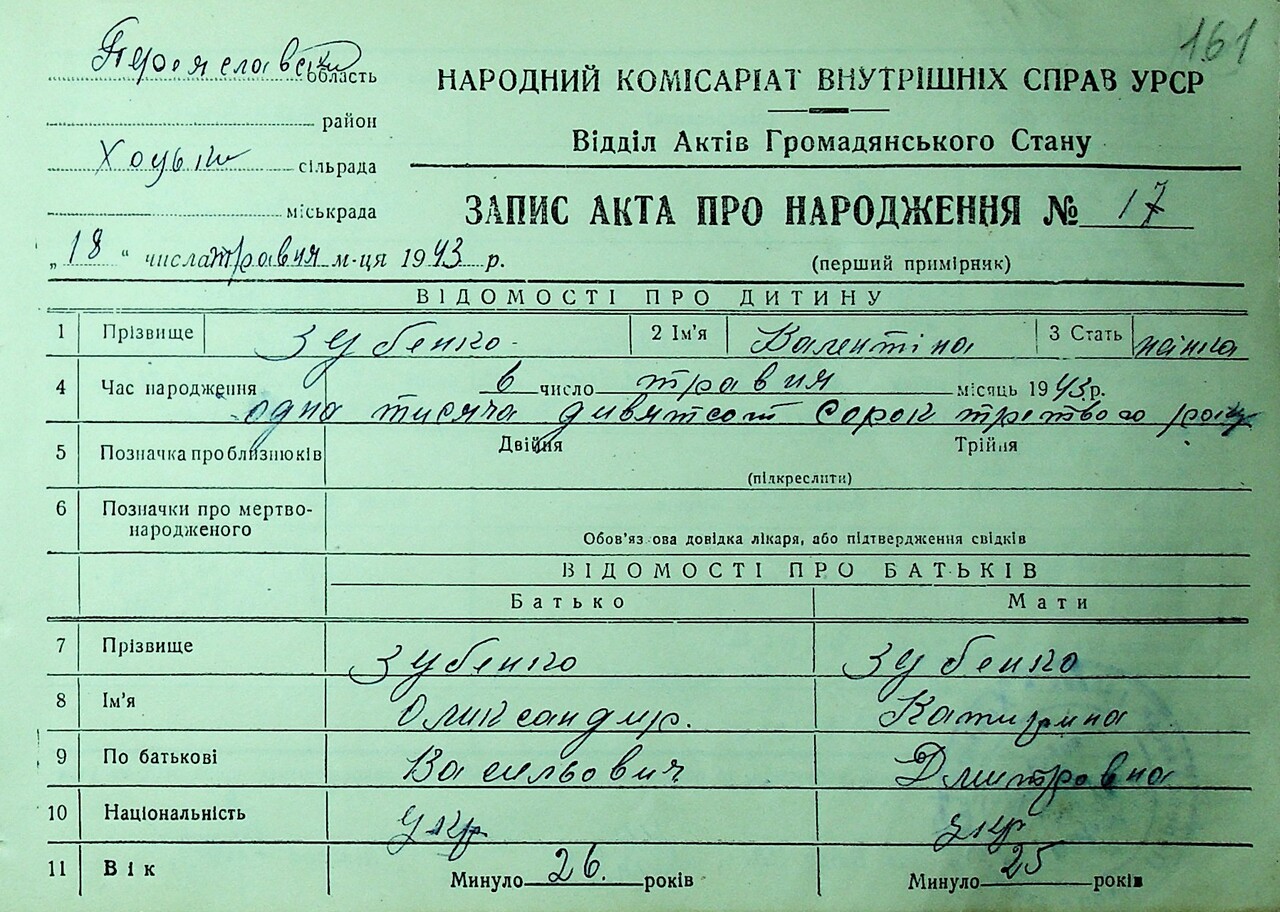 161
Переяславский область
район
Хоцьки сільрада
міськрада
„18“ числа травня м-ця 1943 р.
НАРОДНИЙ КОМІСАРІАТ ВНУТРІШНІХ СПРАВ УРСР
Відділ Актів Громадянського Стану
ЗАПИС АКТА ПРО НАРОДЖЕННЯ № 17
(перший примірник)
ВІДОМОСТІ ПРО ДИТИНУ
1 Прізвище Зубенко 2 Ім'я Валентіна 3 Стать
4 Час народження 6 число травня місяць 1943 р.
одна тисяча девятсот сорок третього року
5 Позначка про близнюків Двійня Трійня
(підкреслити)
6 Позначки про мертво-
народженого
Обов'яз ова довідка лікаря, або підтвердження свідків
ВІДОМОСТІ ПРО БАТЬКІВ
Батько Мати
7 Прізвище Зубенко Зубенко
8 Ім'я Олександр. Катерина
9 По батькові Васильович Дмитровна
10 Національність укр укр
11 Вік Минуло 26. років Минуло 25 років